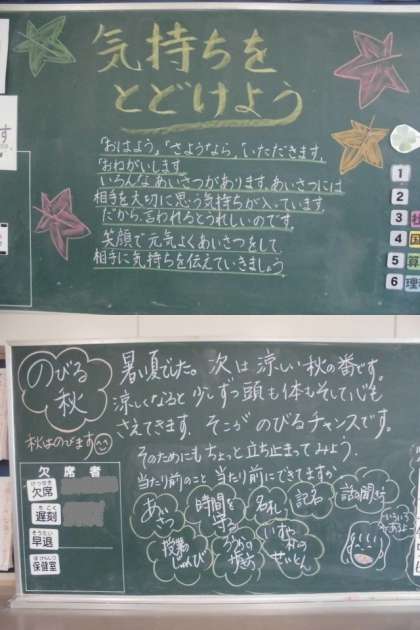 気持ちを
とどけよう
「おはよう」「さようなら」「いただきます」
「おねがいします」
いろんなあいさつがあります。あいさつには
相手を大切に思う気持ちが入っています。
だから、言われるとうれしいのです。
笑顔で元気よくあいさつをして
相手に気持ちを伝えていきましょう
す。
1
2
3 社
4 国
5 算
6 理
のびる
秋
秋はのびます
暑い夏でした。次は涼しい秋の番です。
涼しくなると少しずつ頭も体もそして心も
さえてきます。そこがのびるチャンスです。
そのためにもちょっと立ち止まってみよう。
当たり前のこと当たり前にできてますか
あいさつ
時間を
守る
名札
記名
話の聞き方
授業の
じゅんび
ろうかの
歩き方
いすや
机の
せいとん
欠席者
けっせき
欠席
ちこく
遅刻
そうたい
早退
ほけんしつ
保健室